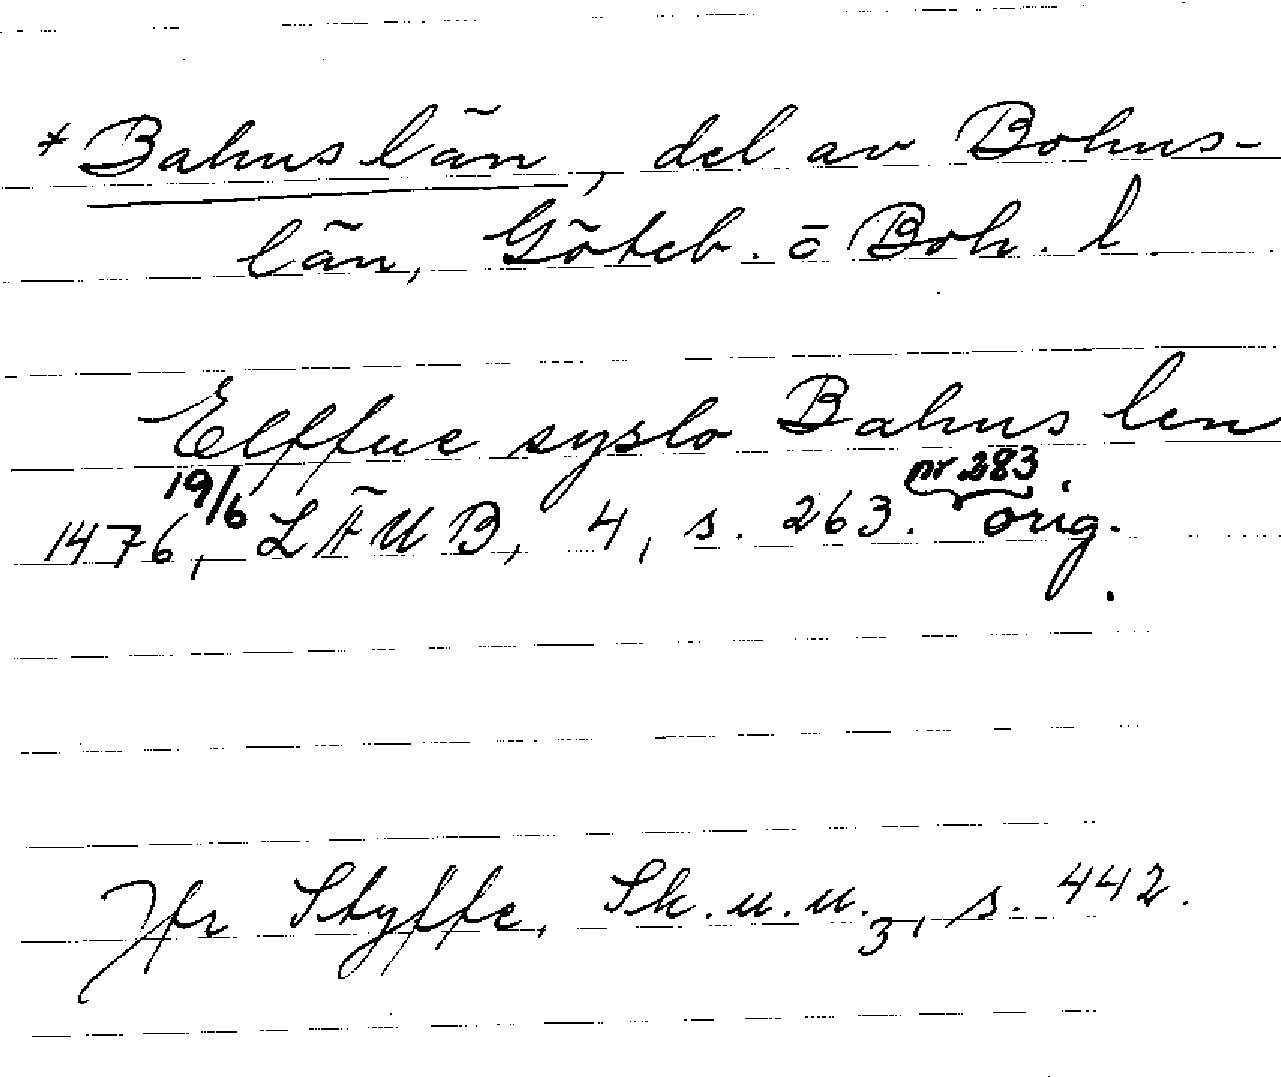 * Bahuslän, del av Bohus-
län, Göteb. o Boh. l.
Elffue syslo Bahus len
1476, 19/6 LÄUB, 4, s. 263. nr 283. orig.
Jfr Styffe, Sk. u. u. 3, s. 442.